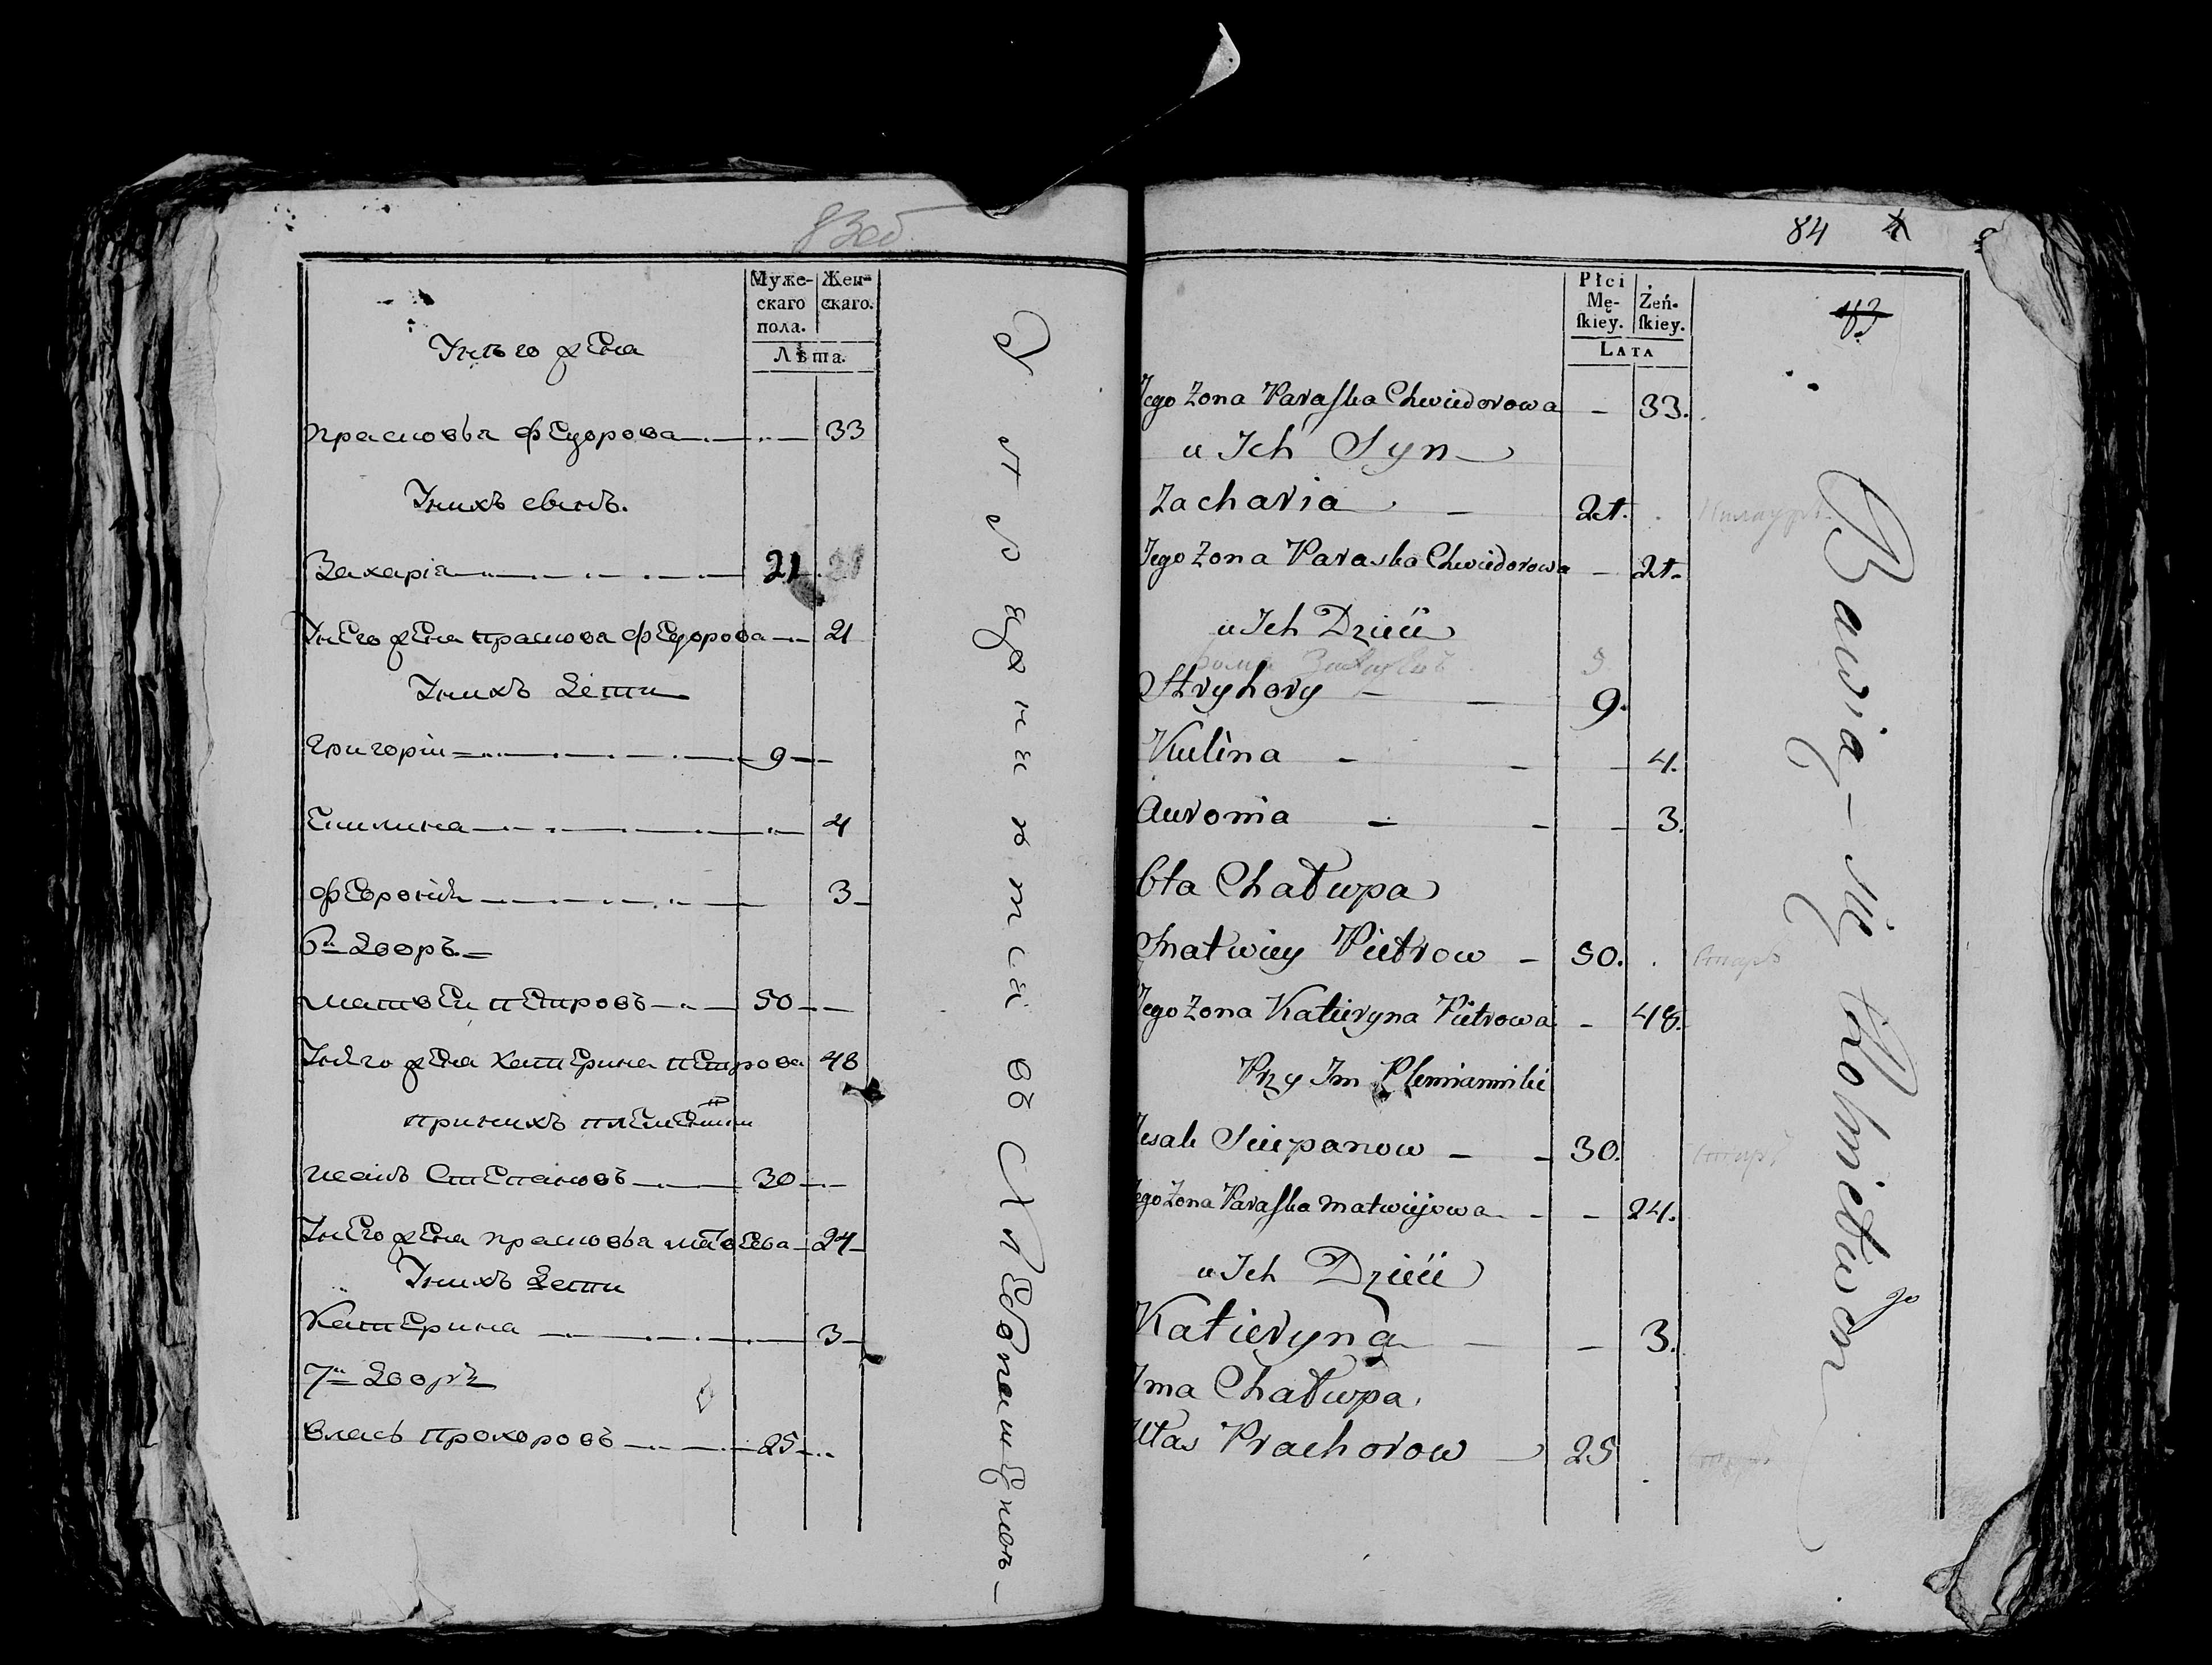 83об
Муже-
скаго
пола.
Жен-
скаго.
Лѣта.
Унего жена
прасковья федорова 33
Унихъ сынъ.
Захарія 21 21
Унего жена прасковья федорова 21
Унихъ дети
григорій 9
4
февронія 3
6й дворъ
матвей петровъ 50
Унего жена катерина петрова 48
принихъ племенники
исакъ степановъ 30
Унего жена прасковья матвеева 24
Унихъ дети
катерина 3
7й дворъ
власъ прохоровъ 25
Утверждении хатей въ Хлебопашенномъ
84
Płci
Mę-
ſkiey.
Żeń-
ſkiey.
Lata
Jego Zona Paraſka Chwiedorowa 33.
u Ich Syn
Zacharia 21.
Jego Zona Paraska Chwiedorowa 21.
u Ich Dzieci
Hryhory 9.
Kulina 4.
Auronia 3.
6ta Chałupa
Matwiey Pietrow 50.
Jego Zona Katieryna Pietrowa 48.
Przy Im Plemianniki
Jsak Sciepanow 30.
Jego Zona Paraſka Matwiejowa 24.
u Ich Dzieci
Katieryna 3.
7ma Chałupa
Ułas Prachorow 25
Bawią-się Rolnictwem